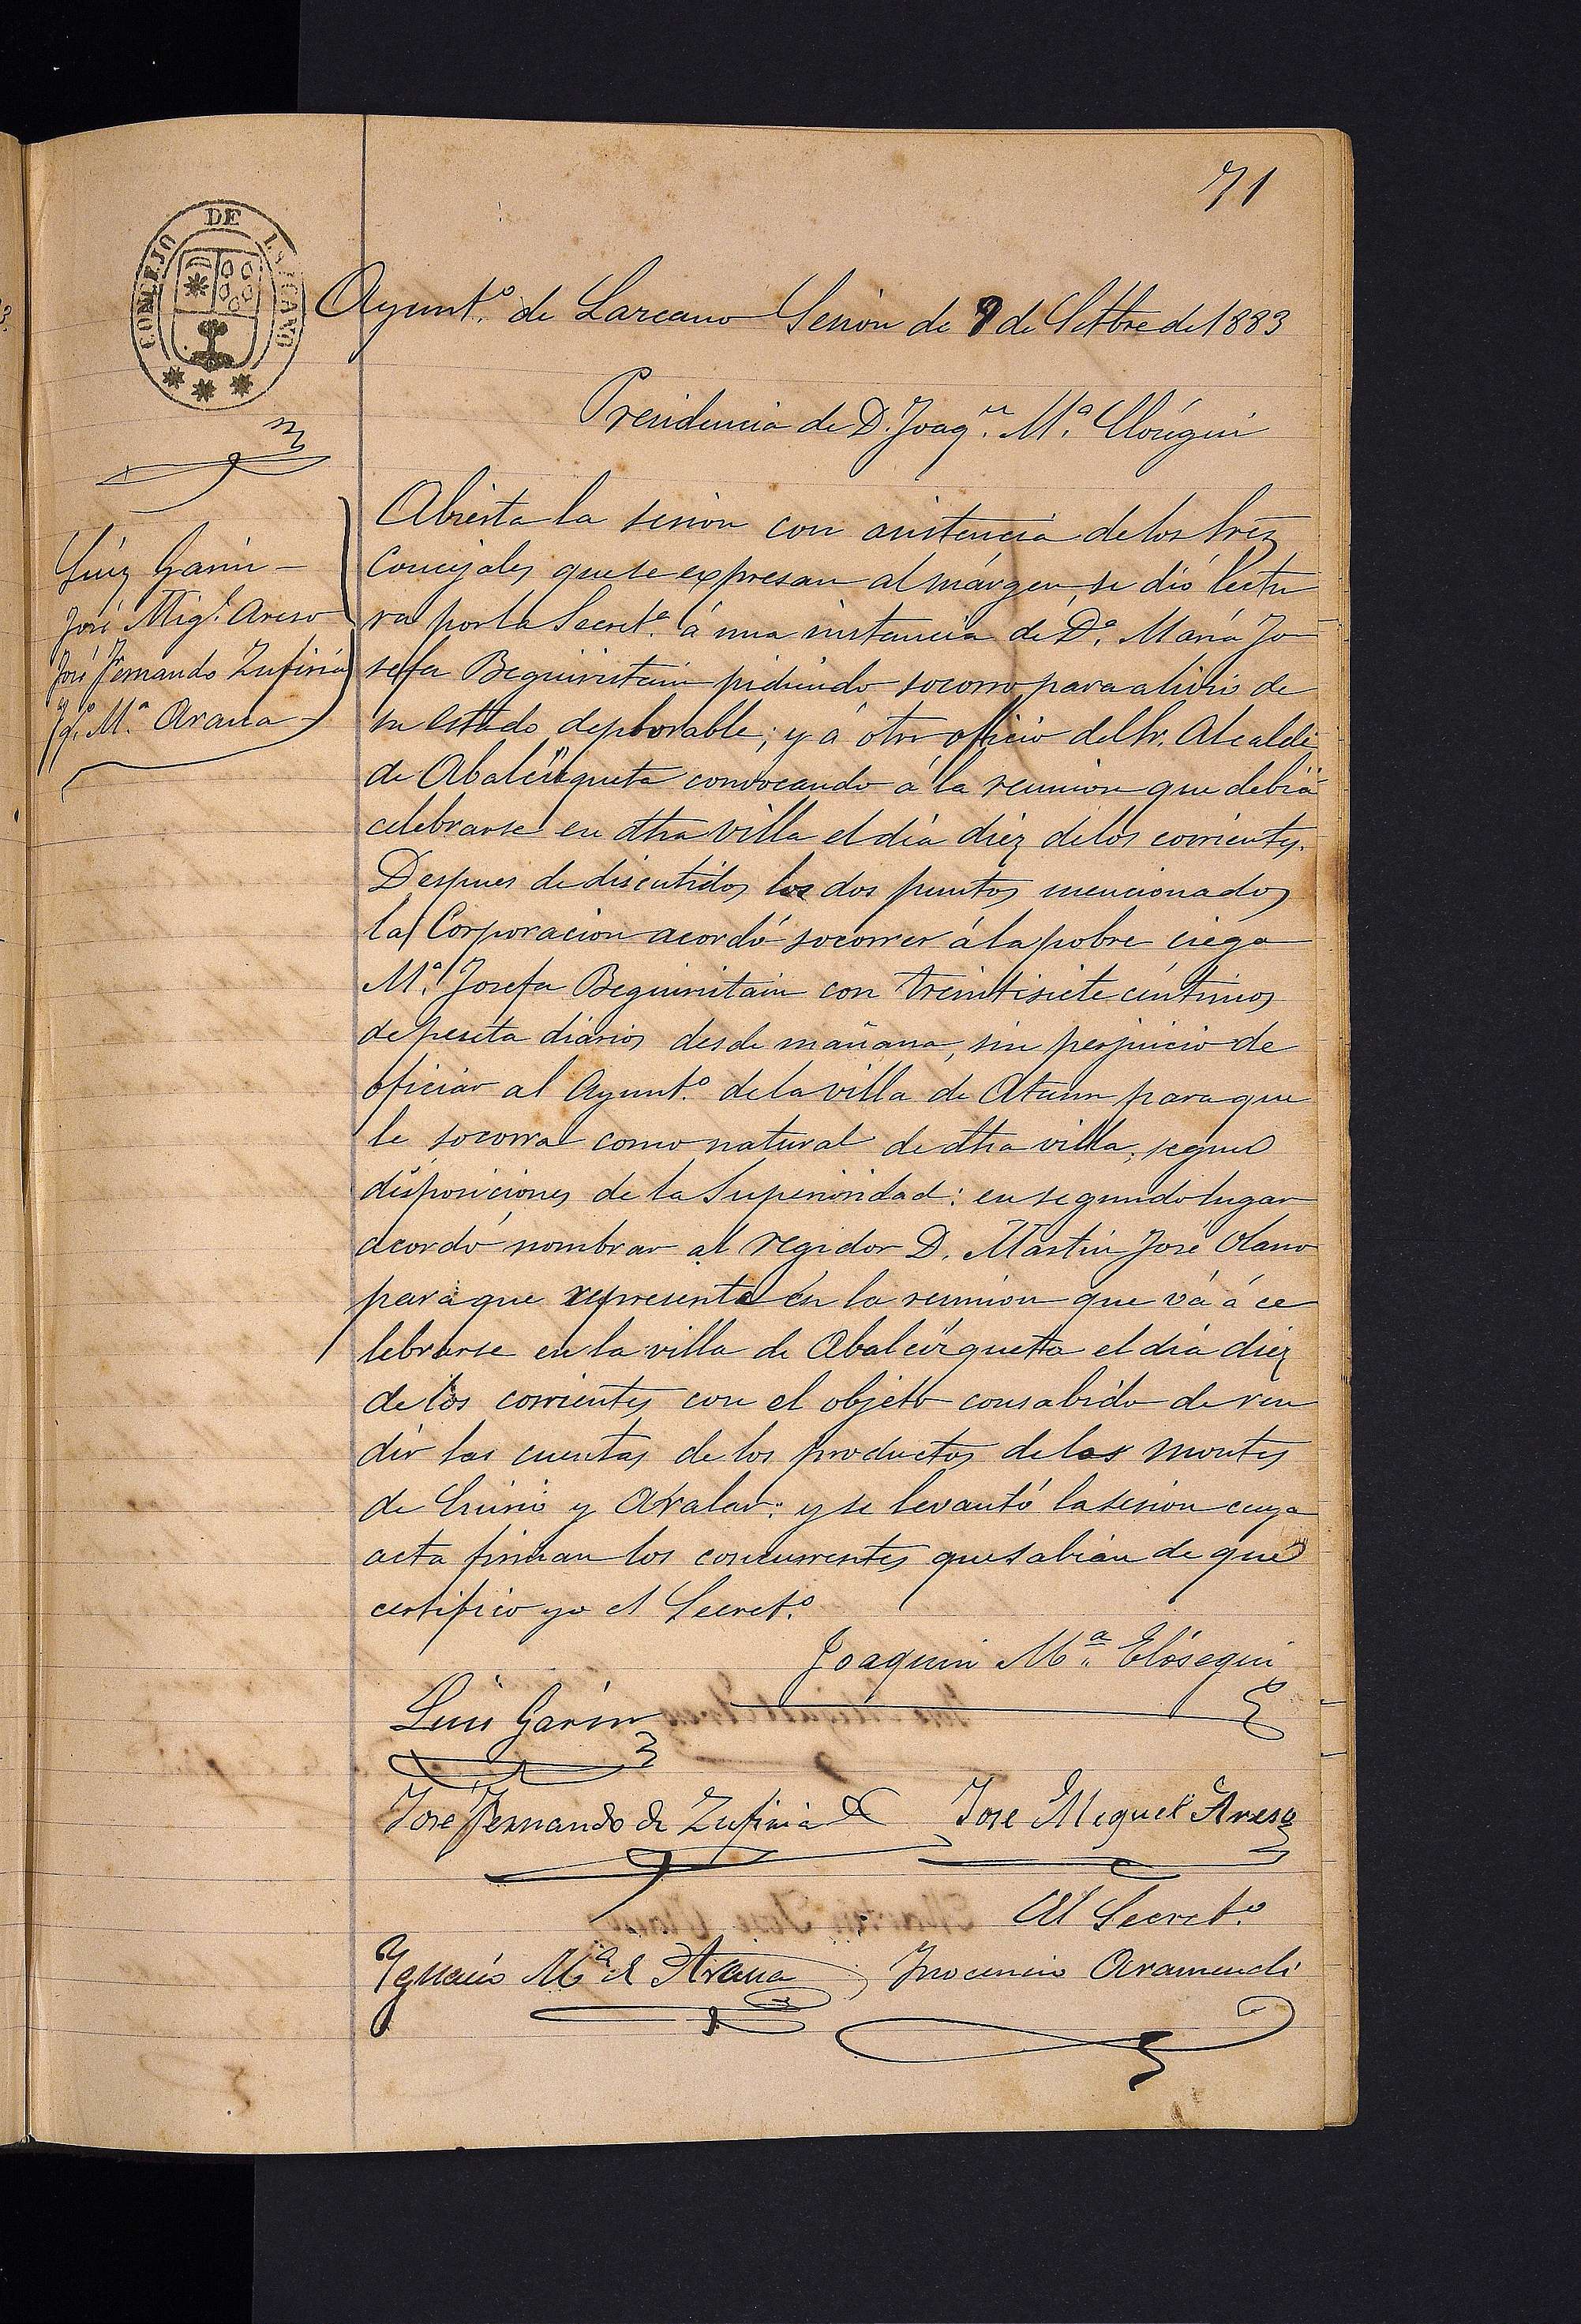 71
CONCEJO DE LAZCANO
Ayunt.º de Lazcano Sesión de 9 de Setbre de 1883
Presidencia de D. Joaqⁿ. M.ª Elósegui
Luiz Garin –
José Migˡ. Areso
José Fernando Zufiria
Ygº. M.ª Arana
Abierta la sesion con asistencia de los Sres
Concejales que se expresan al márgen, se dió lectu
ra por la Secret.ª á una instancia de D.ª María Jo
sefa Beguiristain pidiendo socorro para alivio de
su estado deplorable; y á otro oficio del Sr. Alcalde
de Abalcizqueta convocando á la reunion que debía
celebrarse en dha villa el día diez de los corrientes.
Despues de discutidos los dos puntos mencionados
la Corporacion acordó socorrer á la pobre ciega
M.ª Josefa Beguiristain con treintisiete céntimos
de peseta diarios desde mañana, sin perjuicio de
oficiar al Ayunt.º de la villa de Ataun para que
le socorra como natural de dha villa, segun
disposiciones de la Superioridad: en segundo lugar
acordó nombrar al regidor D. Martin José Olano
para que represente en la reunion que vá á ce
lebrarse en la villa de Abalcizquetta el día diez
de los corrientes con el objeto consabido de ren
dir las cuentas de los productos de los montes
de Enirio y Aralar: y se levantó la sesion cuya
acta firman los concurrentes que sabian de que
certifico yo el Secret.º
Joaquin M.ª Elósegui
Luis Garin
José Fernando de Zufiria José Miguel Areso
El Secret.º
Ygnacio M.ª de Arana Inocencio Aramendi